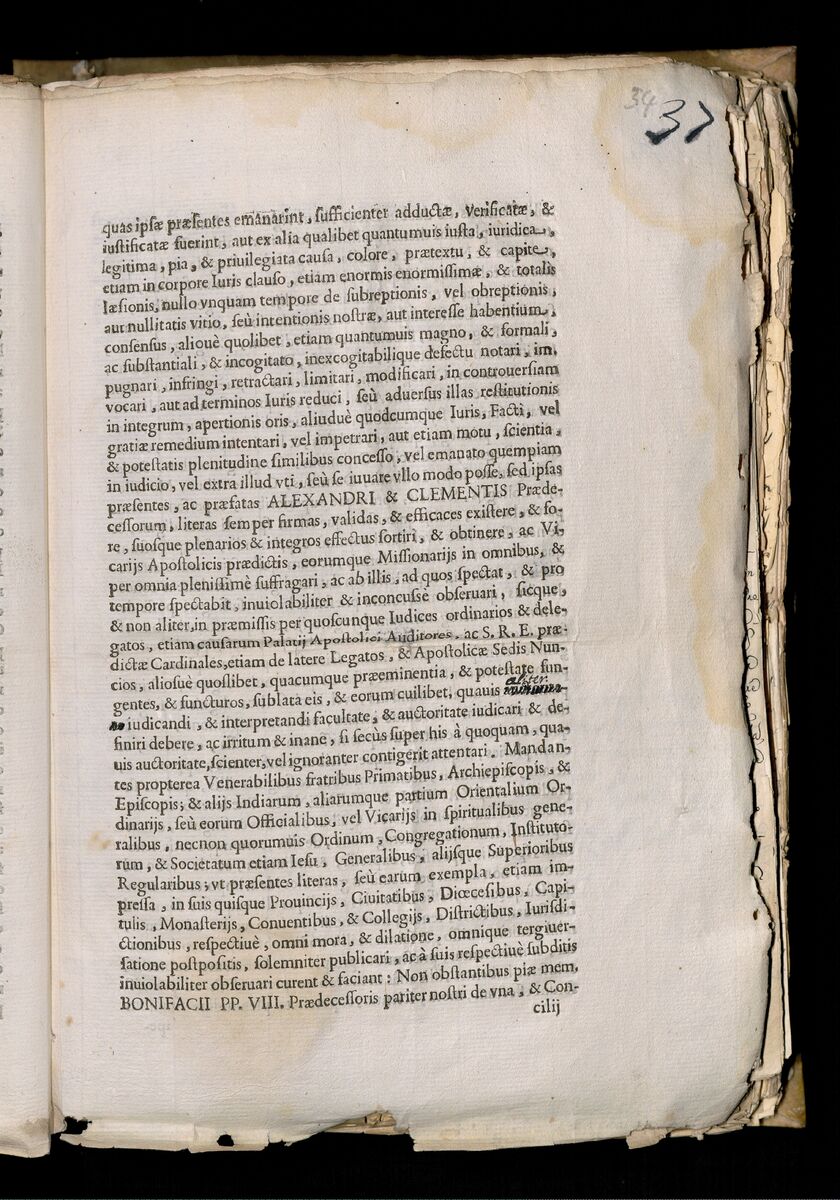 34
37
quas ipsæ præsentes emanarint, sufficienter adductæ, verificatæ, &
iustificatæ fuerint, aut ex alia qualibet quantumuis iusta, iuridica,
legitima, pia, & priuilegiata causa, colore, prætextu, & capite,
etiam in corpore Iuris clauso, etiam enormis enormissimæ, & totalis
læsionis, nullo vnquam tempore de subreptionis, vel obreptionis,
aut nullitatis vitio, seù intentionis nostræ, aut interesse habentium,
consensus, aliouè quolibet, etiam quantumuis magno, & formali,
ac substantiali, & incogitato, inexcogitabilique defectu notari, im,
pugnari, infringi, retractari, limitari, modificari, in controuersiam
vocari, aut ad terminos Iuris reduci, seù aduersus illas restitutionis
in integrum, apertionis oris, aliuduè quodcumque Iuris, Facti, vel
gratiæ remedium intentari, vel impetrari, aut etiam motu, scientia,
& potestatis plenitudine similibus concesso, vel emanato quempiam
in iudicio, vel extra illud vti, seù se iuuare vllo modo posse, sed ipsas
præsentes, ac præfatas ALEXANDRI & CLEMENTIS Præde-
cessorum, literas semper firmas, validas, & efficaces existere, & fo-
re, suosque plenarios & integros effectus sortiri, & obtinere, ac Vi-
carijs Apostolicis prædictis, eorumque Missionarijs in omnibus, &
per omnia plenissimè suffragari, ac ab illis, ad quos spectat, & pro
tempore spectabit, inuiolabiliter & inconcussè obseruari, sicque,
& non aliter, in præmissis per quoscunque Iudices ordinarios & dele-
gatos, etiam causarum Palatij Apostolici Auditores, ac S. R. E. præ-
dictæ Cardinales, etiam de latere Legatos, & Apostolicæ Sedis Nun-
cios, aliosuè quoslibet, quacumque præeminentia, & potestate fun-
gentes, & functuros, sublata eis, & eorum cuilibet, quauis aliter
iudicandi, & interpretandi facultate, & auctoritate iudicari & de-
finiri debere, ac irritum & inane, si secùs super his à quoquam, qua-
uis auctoritate, scienter, vel ignoranter contigerit attentari. Mandan-
tes propterea Venerabilibus fratribus Primatibus, Archiepiscopis, &
Episcopis; & alijs Indiarum, aliarumque partium Orientalium Or-
dinarijs, seù eorum Officialibus, vel Vicarijs in spiritualibus gene-
ralibus, necnon quorumuis Ordinum, Congregationum, Instituto-
rum, & Societatum etiam Iesu, Generalibus, alijsque Superioribus
Regularibus; vt præsentes literas, seù earum exempla, etiam im-
pressa, in suis quisque Prouincijs, Ciuitatibus, Diœcesibus, Capi-
tulis, Monasterijs, Conuentibus, & Collegijs, Districtibus, Iurisdi-
ctionibus, respectiuè, omni mora, & dilatione, omnique tergiuer-
satione postpositis, solemniter publicari, ac à suis respectiuè subditis
inuiolabiliter obseruari curent & faciant: Non obstantibus piæ mem,
BONIFACII PP. VIII. Prædecessoris pariter nostri de vna, & Con-
cilij